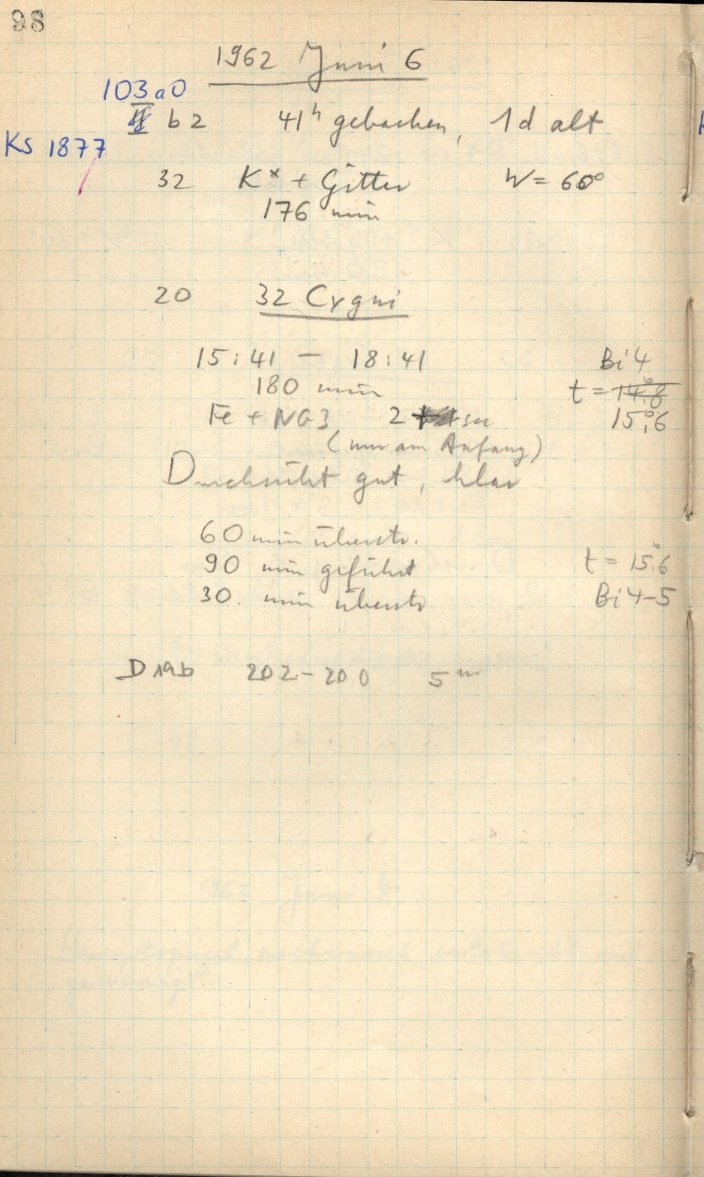 98
1962 Juni 6
103a0
b2 41h gebacken, 1d alt
KS 1877
32 K* + Gitter W = 60°
176 min
20 32 Cygni
15:41 — 18:41 Bi 4
180 min t = 14°,8
Fe + NG3 2 sec 15°,6
(nur am Anfang)
Durchsicht gut, klar
60 min überstr.
90 min geführt t = 15°,6
30 min überstr Bi 4-5
D 19b 202 - 200 5m